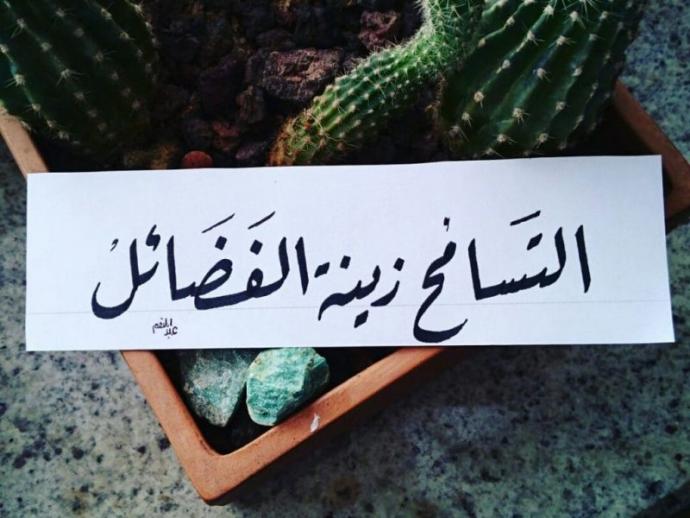 التسامح زينة الفَضَائل
عبدالمنعم